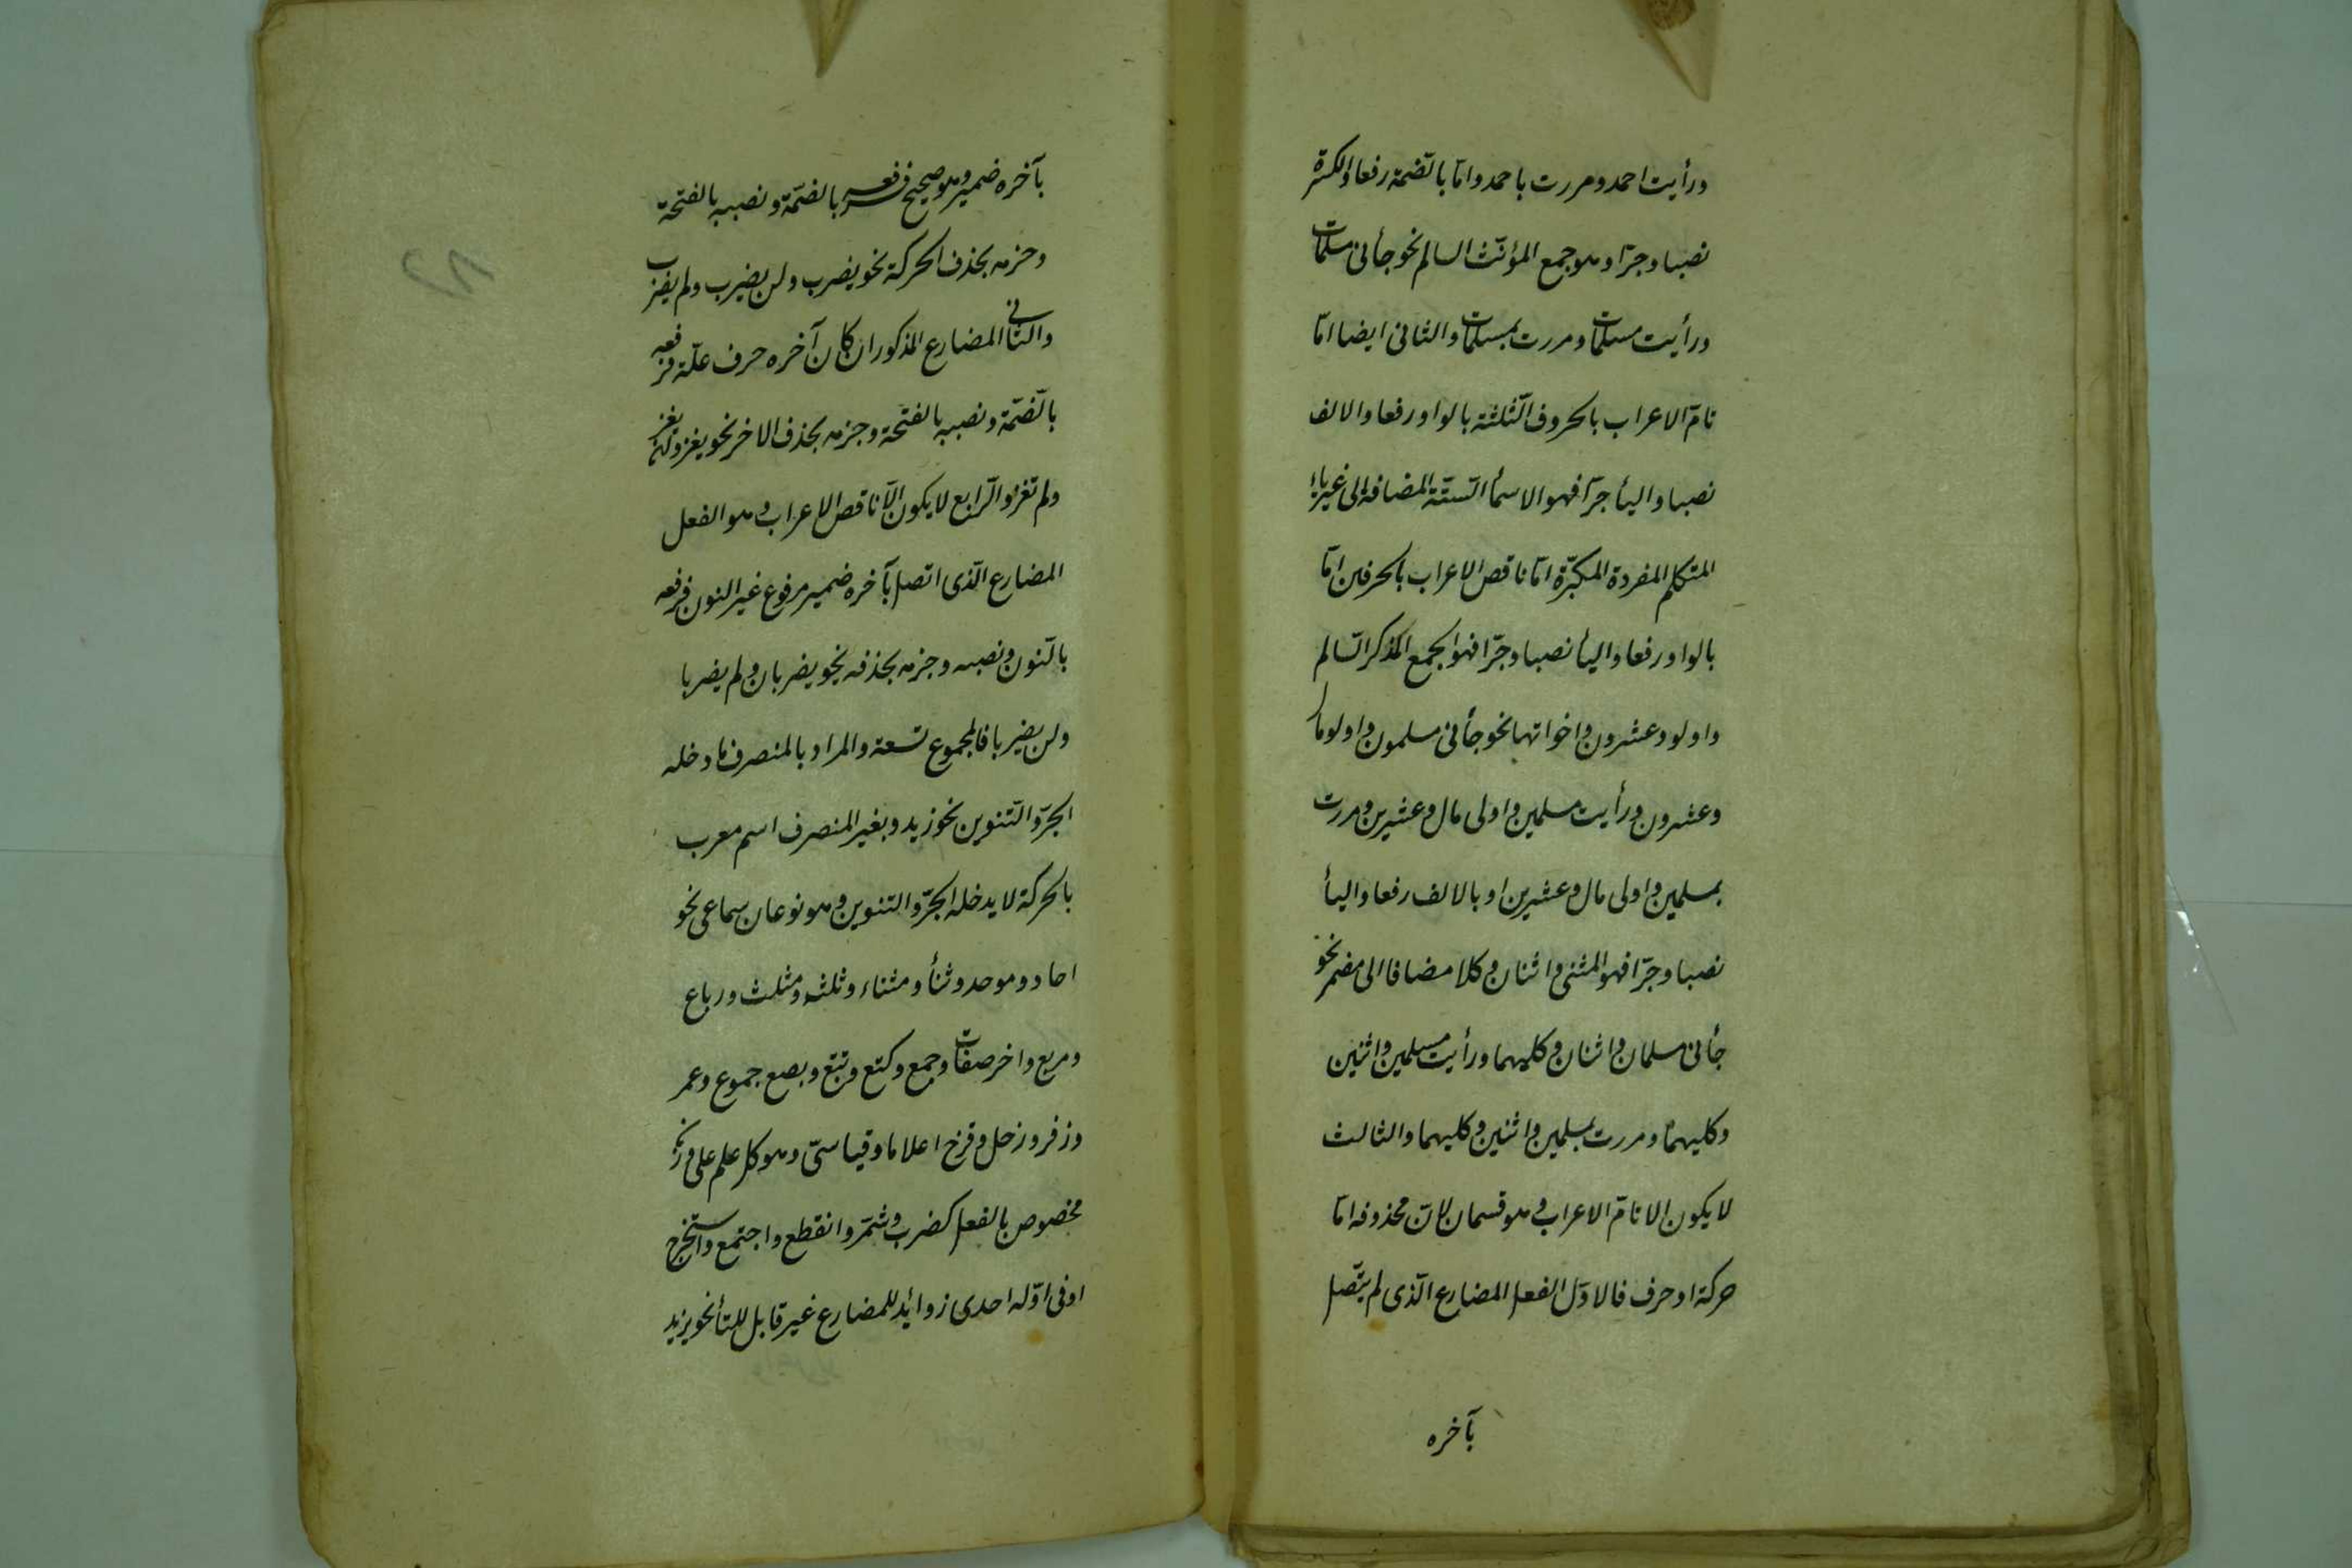 ورأيت احمد ومررت باحمد وامّا بالضّمة رفعا والكسرة
نصبا وجرّا وهو جمع المؤنّث السالم نحو جأنى مسلمات
ورأيت مسلمات ومررت بمسلمات والثانى ايضا امّا
تامّ الاعراب بالحروف الثّلثة بالواو رفعا والالف
نصبا واليأ جرّا فهو الاسمأ السّتّة المضافة الى غير ياء
المتكلم المفردة المكبّرة امّا ناقص الاعراب بالحرفين امّا
بالواو رفعا واليأ نصبا وجرّا فهو الجمع المذكر السّالم
واولو وعشرون واخواتها نحو جأنى مسلمون واولو مال
وعشرون ورأيت مسلمين واولى مال وعشرين ومررت
بمسلمين واولى مال وعشرين او بالالف رفعا واليأ
نصبا وجرّا فهو المثنى واثنان وكلا مضافا الى مضمر نحو
جأنى مسلمان واثنان وكليهما ورأيت مسلمين واثنين
وكليهما ومررت بمسلمين واثنين وكليهما والثالث
لا يكون الا تامّ الاعراب وهو قسمان لانّ محذوفه امّا
حركة او حرف فالاوّل الفعل المضارع الّذى لم يتّصل
بآخره
بآخره ضمير وهو صحيح فرفعه بالضّمّة ونصبه بالفتحة
وجزمه بحذف الحركة نحو يضرب ولن يضرب ولم يضرب
والثّانى المضارع المذكور ان كان آخره حرف علّة فرفعه
بالضّمّة ونصبه بالفتحة وجزمه بحذف الاخر نحو يغزو ولن يغز
ولم تغز والرّابع لا يكون الّا ناقص الاعراب وهو الفعل
المضارع الّذى اتصل بآخره ضمير مرفوع غير النون فرفعه
بالنّون ونصبه وجزمه بحذفه نحو يضربان ولم يضربا
ولن يضربا فالمجموع تسعة والمراد بالمنصرف ما دخله
الجرّ والتّنوين نحو زيد وبغير المنصرف اسم معرب
بالحركة لا يدخله الجرّ والتنوين وهو نوعان سماعى نحو
احاد وموحد وثنأ ومثناء وثلثه ومثلث ورباع
ومربع واخر صفات وجمع وكتع وبتع وبصع جموع وعمر
وزفر وزحل وقزح اعلاما وقياسىّ وهو كل علم على وزن
مخصوص بالفعل كضرب وشمّر وانقطع واجتمع واستخرج
او فى اوّله احدى زوائد للمضارع غير قابل للتأ نحو يزيد